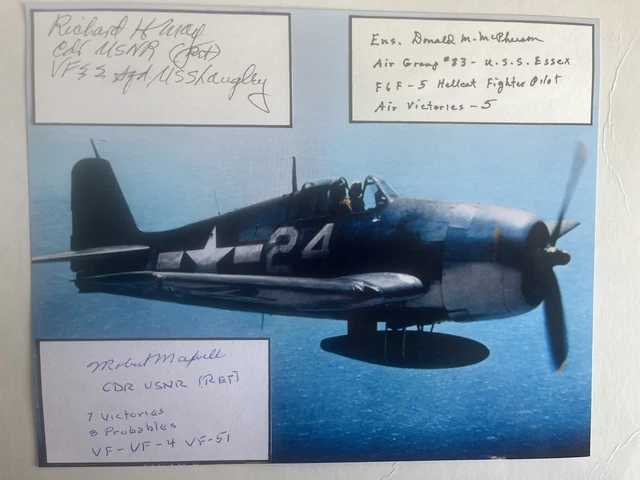 Richard H May
Cdr USNR (Ret)
VF32 Sqd, USS Langley
Ens. Donald M. McPherson
Air Group #83 - U.S.S. Essex
F6F-5 Hellcat Fighter Pilot
Air Victories - 5
24
Robert Maxwell
CDR USNR (RET)
7 Victories
3 Probables
VF-VF-4 VF-51